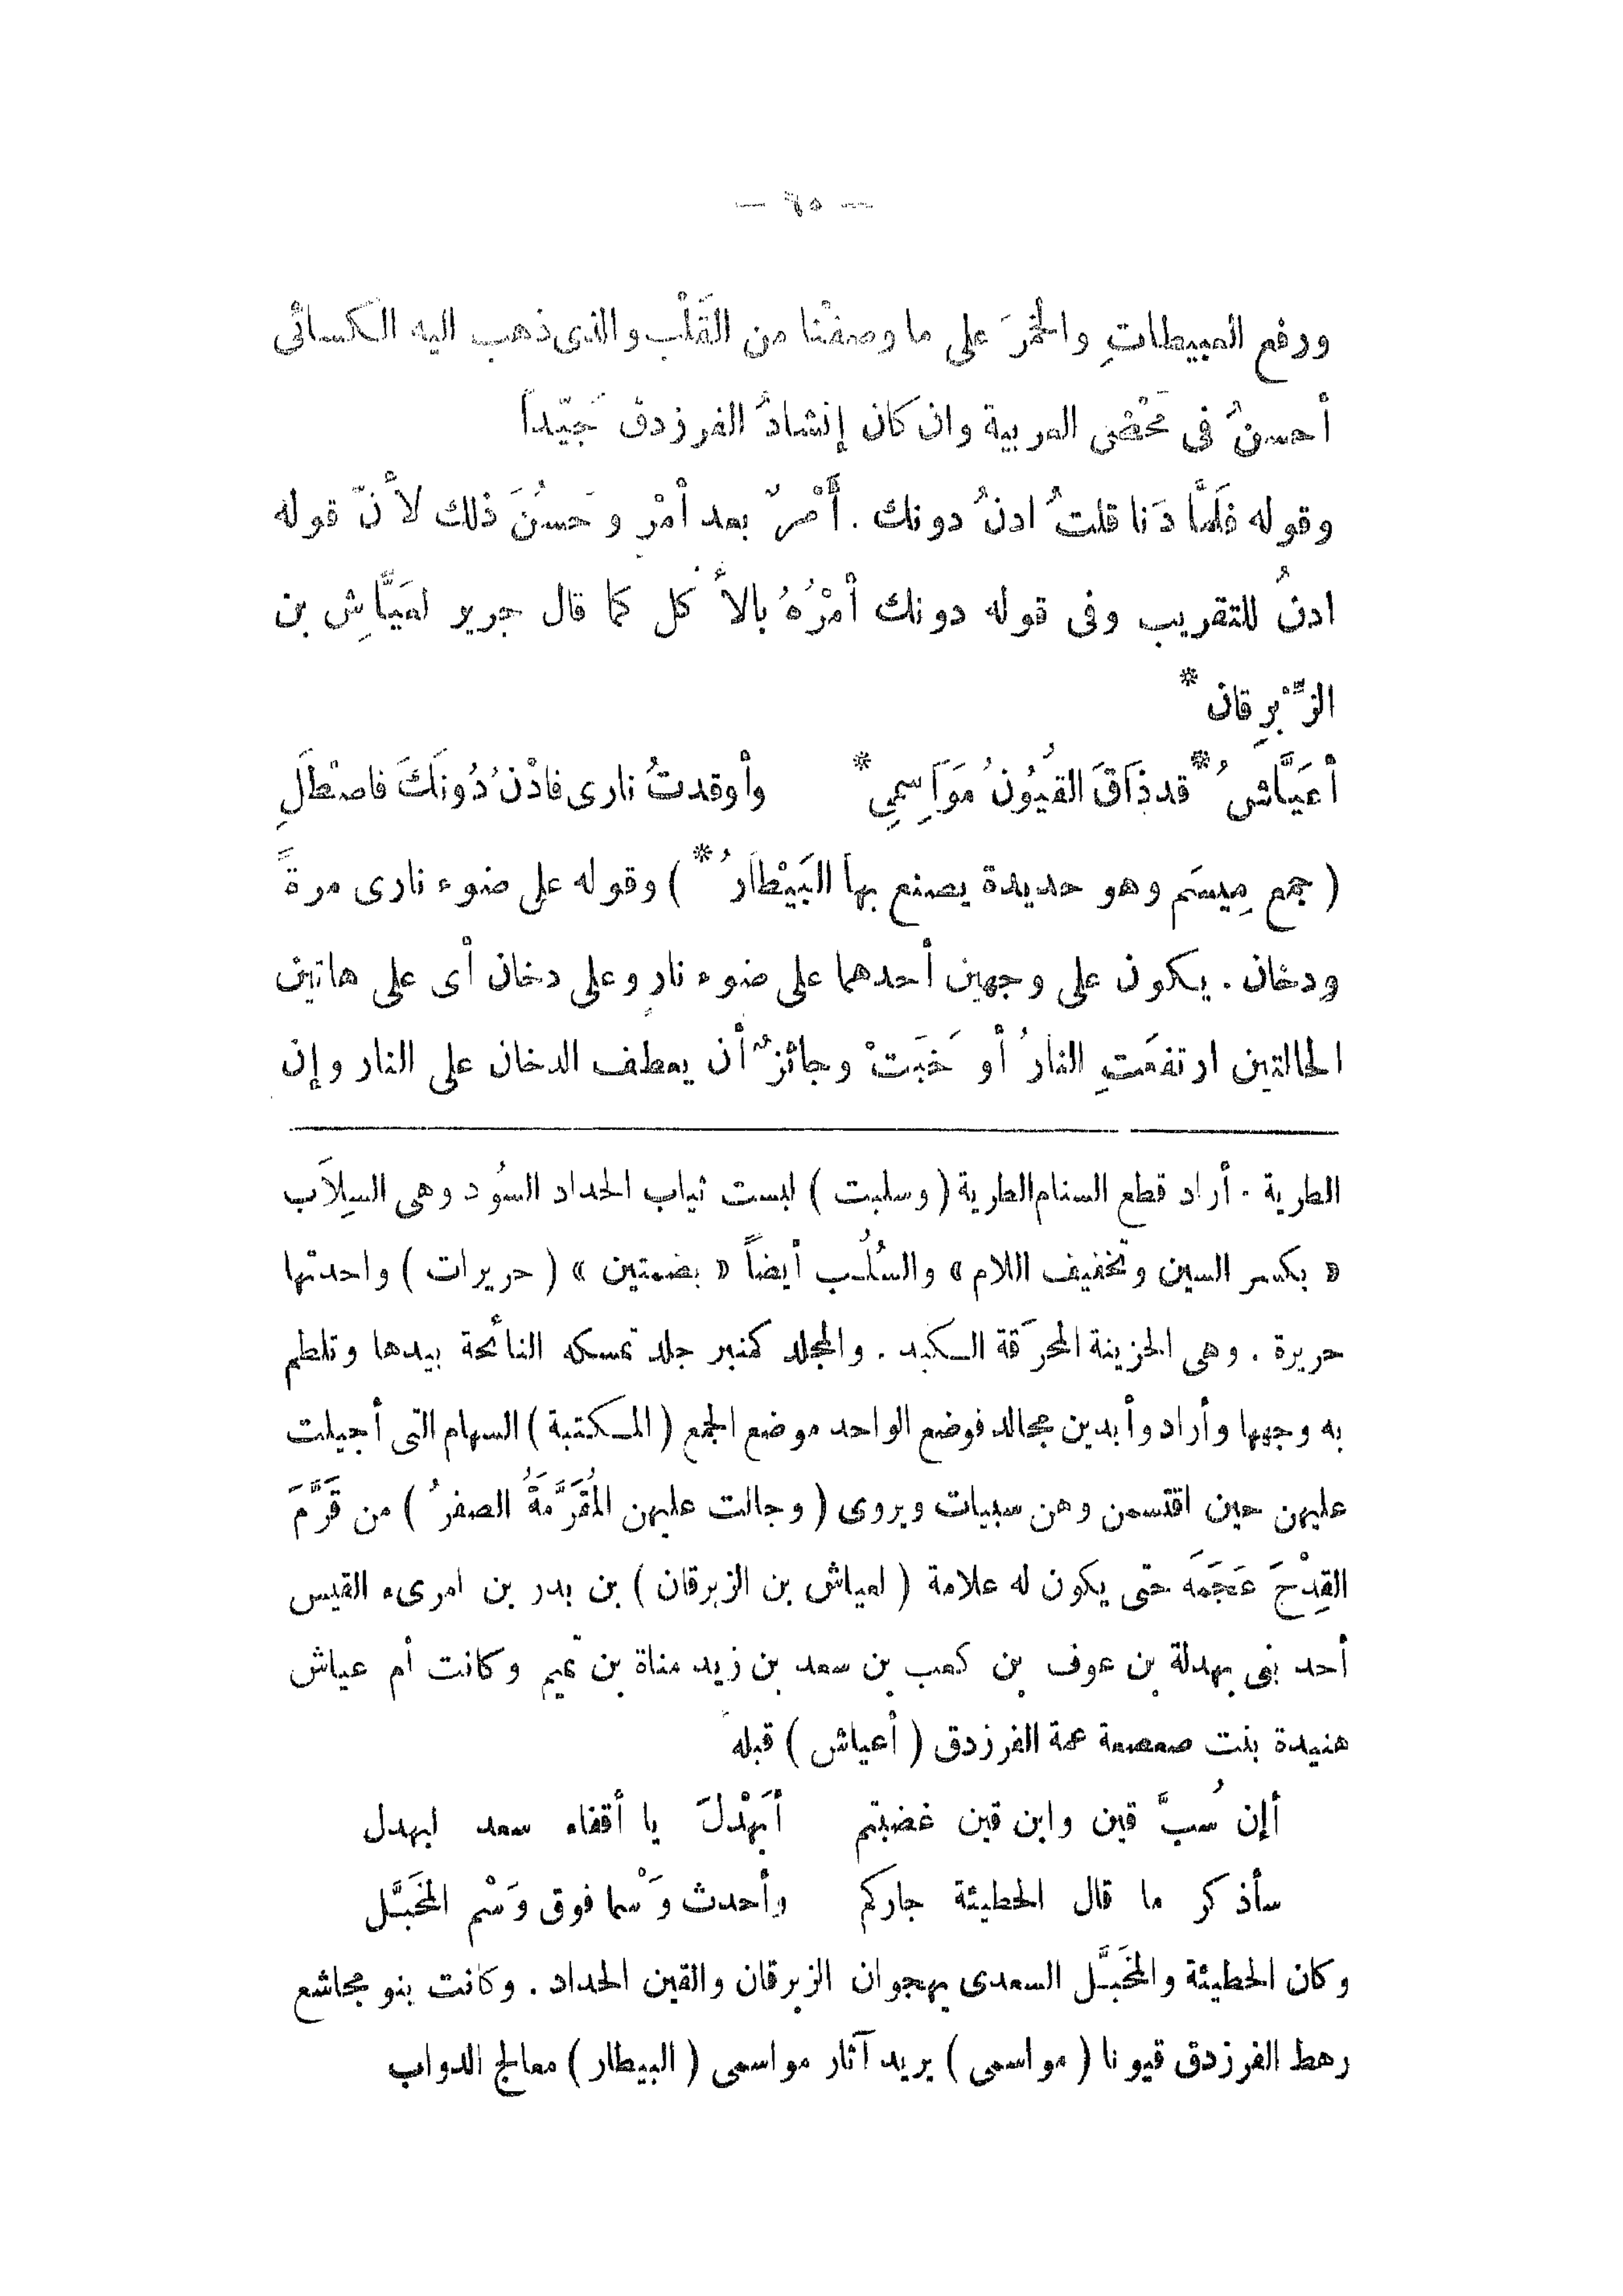 — ٦٥ —
ورفع العبيطاتِ والخمرَ على ما وصفْنا من القَلْب والذى ذهب اليه الكسائى
أحسنُ فى مَحْضِ العربية وان كان إنشادُ الفرزدق جَيّداً
وقوله فَلَمَّا دَنا قلتُ ادنُ دونك . أَمْرٌ بعد أمْرٍ وحَسُنَ ذلك لأنّ قوله
ادنُ للتقريب وفى قوله دونك أمْرُهُ بالأكل كما قال جرير لعَيَّاشِ بن
الزِّبْرِقان*
أعَيَّاشُ* قد ذَاقَ القُيُونُ مَوَاسِمِي* وأوقدتُ نارى فادْنُ دُونَكَ فاصْطَلِ
( جمع مِيسَم وهو حديدة يصنع بها البَيْطَارُ* ) وقوله على ضوء نارى مرةً
ودخان . يكون على وجهين أحدهما على ضوء نارٍ وعلى دخان أى على هاتين
الحالتين ارتفعَتِ النارُ أو خَبَتْ وجائزٌ أن يعطف الدخان على النار وإن
الطرية . أراد قطع السنام الطرية ( وسلبت ) لبست ثياب الحداد السُود وهى السِلاَب
« بكسر السين وتخفيف اللام » والسُلُب أيضاً « بضمتين » ( حريرات ) واحدتها
حريرة . وهى الحزينة المحرَقة الكبد . والمجلد كمنبر جلد تمسكه النائحة بيدها وتلطم
به وجهها وأراد وأبدين مجالد فوضع الواحد موضع الجمع ( المكتبة ) السهام التى أجيلت
عليهن حين اقتسمن وهن سبيات ويروى ( وجالت عليهن المُقَرَّمَةُ الصفرُ ) من قَرَّمَ
القِدْحَ عَجَمَه حتى يكون له علامة ( لعياش بن الزبرقان ) بن بدر بن امرىء القيس
أحد بنى بهدلة بن عوف بن كعب بن سعد بن زيد مناة بن تميم وكانت أم عياش
هنيدة بنت صعصعة عمة الفرزدق ( أعياش ) قبله
أإن سُبَّ قين وابن قين غضبتم أبَهْدَلَ يا أقفاء سعد لبهدل
سأذكر ما قال الحطيئة جاركم وأحدث وَسْما فوق وَسْم المخَبَّل
وكان الحطيئة والمخَبَّل السعدى يهجوان الزبرقان والقين الحداد . وكانت بنو مجاشع
رهط الفرزدق قيونا ( مواسمى ) يريد آثار مواسمى ( البيطار ) معالج الدواب